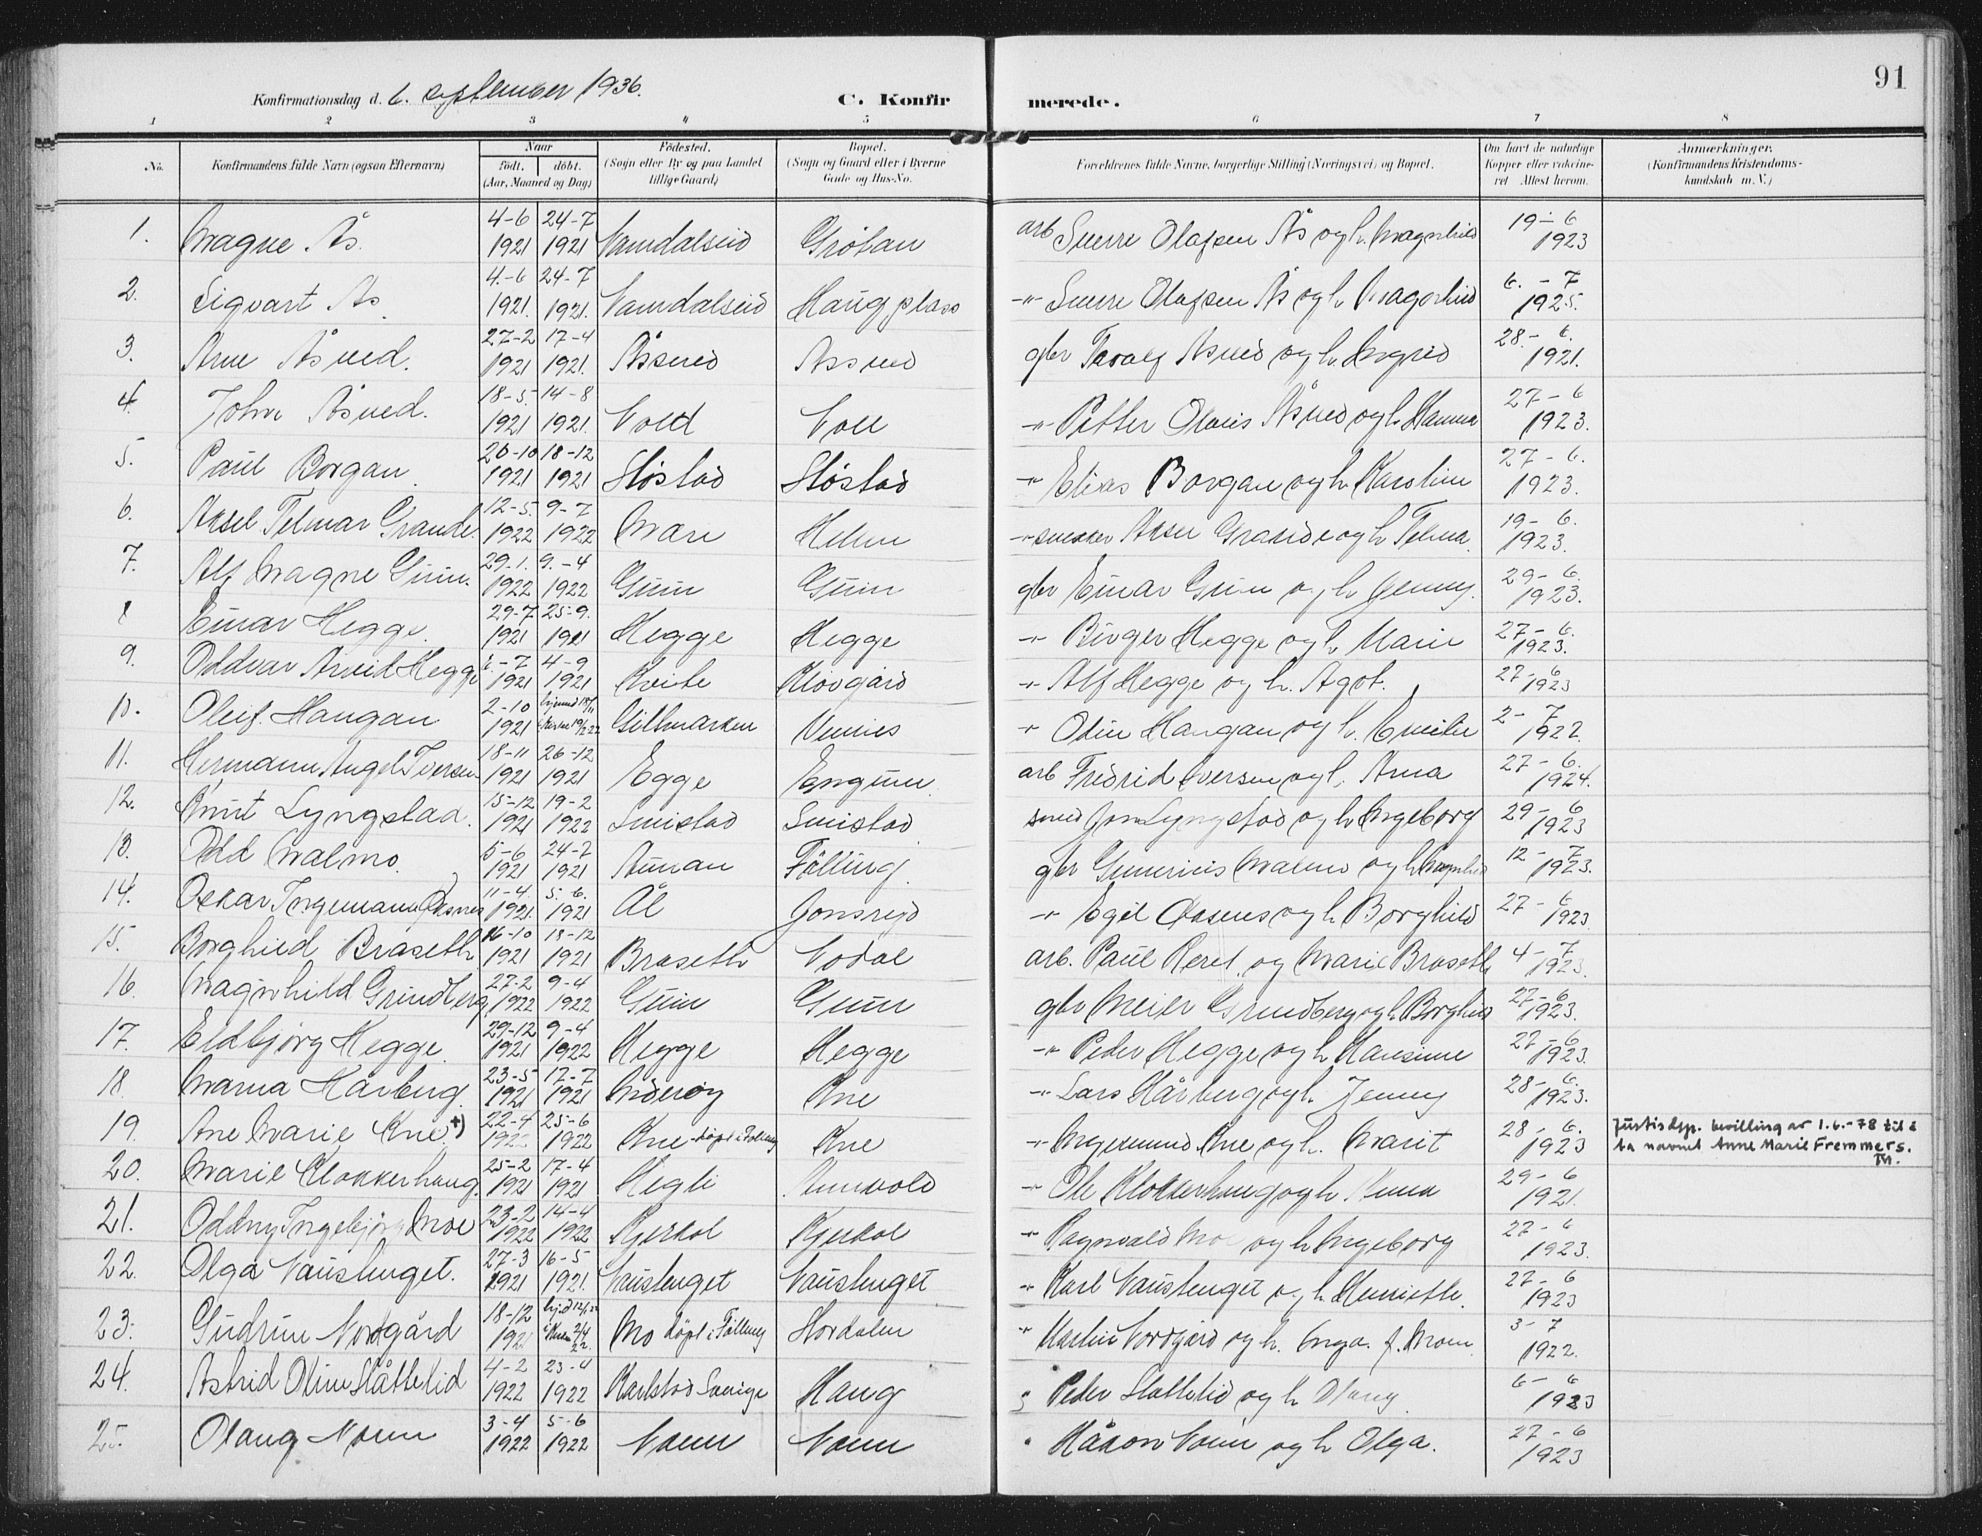 91
Konfirmationsdag d. 6. september 1936. C. Konfir merede.
1 2 3 4 5 6 7 8
No. Konfirmandens fulde Navn (ogsaa Efternavn) Naar født. døbt. (Aar, Maaned og Dag) Fødested. (Sogn eller By og paa Landet tillige Gaard) Bopæl. (Sogn og Gaard eller i Byerne Gade og Hus-No. Forældrenes fulde Navne, borgerlige Stilling (Næringsvei) og Bopæl. Om havt de naturlige Kopper eller vakcineret. Attest herom. Anmærkninger. (Konfirmandens Kristendomskundskab m. V.)
1. Magne Ås. 4-6 1921 24-7 1921 Namdalseid Grøtan arb Sverre Olafsen Ås og h. Magnhild 19-6 1923
2. Sigvart Ås 4-6 1921. 24-7 1921. Namdalseid Haugplass -"- Sverre Olafsen Ås og h. Magnhild 6.-7 1925.
3. Arne Åsved. 27-2 1921 17-4 1921. Åssved Assved gbr Toralf Åsved og h. Ingrid 28.-6. 1921.
4. John Åsved. 18-5.- 1921 14-8 1921. Vold Voll -"- Petter Olaus Åsved og h. Hanna 27-6 1923.
5. Paul Borgan. 20-10 1921 18-12 1921 Støstad Støstad -"- Elias Borgan og h. Karoline 27-6. 1923.
6. Aksel Telmar Grande. 12-5. 1922 9-7 1922 Mære Helem -"- snekker Aksel Grande og h. Telma. 19-6. 1923.
7. Alf Magne Guin. 29.1. 1922 9.-4 1922 Guin Guin gbr Einar Guin og h. Jenny. 29-6. 1923.
8 Einar Hegge. 29-7 1921 25-9. 1921 Hegge Hegge -"- Birger Hegge og h. Marie 27-6. 1923.
9. Oddvar Arvid Hegge 6.-7 1921 4-9 1921 Kveite Kløvgård -"- Alf Hegge og h. Agot. 27-6 1923
10. Oleif Haugan 2-10 1921 Vennes -"- Odin Haugan og h. Emilie 2-7 1922.
11. Hermann Angel Iversen 18-11 1921 26-12 1921 Egge arb Fredrid Iversen og h. Arna 27-6. 1924.
12. Knut Lyngstad. 15-12 1921 19-2 1922 Smistad Smistad smed Jon Lyngstad og h. Ingeborg 29-6 1923
13. Odd Malmo. 5-6 1921 24-7 1921 Følling. gbr Gunerius Malmo og h. Magnhild 12-7 1923.
14. Oskar Ingemann Oksnes 11-4. 1921. 5.-6. 1921 Ål -"- Egil Oksnes og h. Borghild 27-6 1923
15. Borghild Braseth. 16-10 1921 18-12 1921 Braseth Vodal arb. Paul Reret. og Marie Braseth 4-7 1923.
16. Magnhild Grindberg 27-2 1922 9-4 1922 Guin Guin gbr Meier Grindberg og h. Borghild 27-6 1923.
17. Eldbjørg Hegge. 29-12 1921 9-4 1922 Hegge Hegge -"- Peder Hegge og h. Hansine 27-6 1923.
18. Marna Hårberg. 23-5 1921 17-7 1921 Inderøy Kne -"- Lars Hårberg og h. Jenny 28-6. 1923.
19. Ane Marie Kne. +) 22-4 1922 25-6 1922 Kne døpt i Følling Kne -"- Ingemund Kne og h. Marit 28-6. 1923 Justisdep. bevilling av 1.6.-78 til å ta navnet Anne Marie Fremmers. TM.
20. Marie Klokkerhaug. 25-2 1921 17-4 1921 Hegli -"- Ole Klokkerhaug og h. Anna 29-6 1921.
21. Oddny Ingebjørg Moe 23-2 1922 14-4 1922 Kjerkol Kjerkol -"- Ragnvald Mo og h. Ingeborg 27-6 1923.
22. Olga Naustenget. 27-3 1921 16-5 1921. Naustenget Naustenget -"- Karl Naustenget og h. Henriette. 27-6 1923
23. Gudrun Nordgård 18-12 1921 Mo døpt i Følling Hordalen -"- Martin Nordgård og h. Inga. f. Moen. 3-7 1922.
24. Astrid Oline Slåttelid 4-2 1922 23-4 1922 Karlstad Sverige Haug Peder Slåttelid og h. Olaug. 6-6 1923
25. Olaug Noem 3-4 1922 5-6 1922 Noem Noem Håkon Noem og h. Olga. 27-6 1923